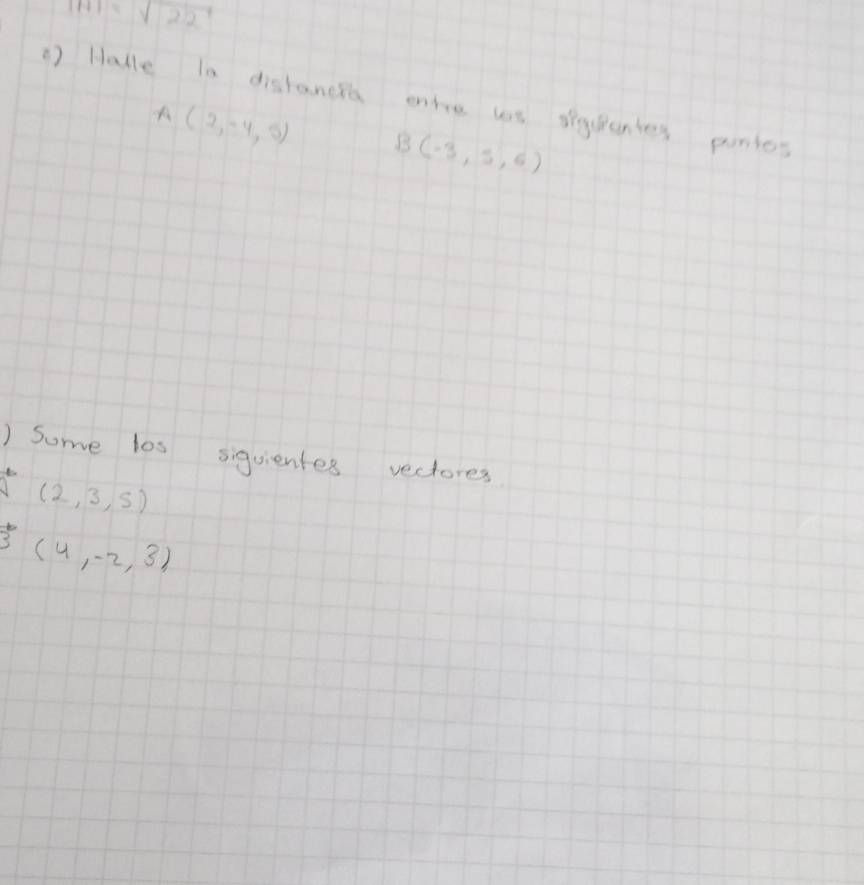 √22
2) Halle la distancia entre los siguientes puntos
A (2,-4,5) B(-3, 5, 6)
) Sume los siguientes vectores
(2,3,5)
(4,-2,3)